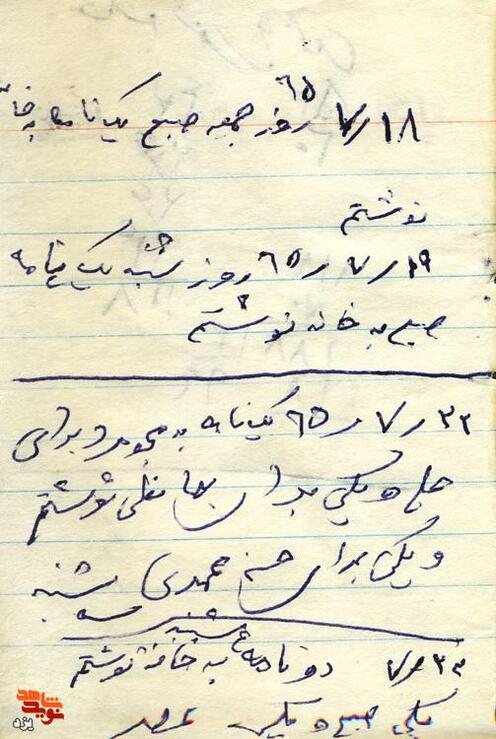 ۱۸/۷/۶۵ روز جمعه صبح یک نامه به خا
نوشتم
۱۹/۷/۶۵ روز شنبه یک نامه
صبح به خانه نوشتم
۲۲/۷/۶۵ یک نامه به و برای
و یکی برای نوشتم
و یکی برای حسن محمدی شنبه
سه شنبه
۲۳/۷ دو نامه به خانه نوشتم
یکی صبح و یکی عصر
نوید شاهد
یزد